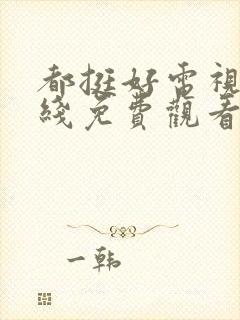 都挺好電視
綫免費觀看
一韩